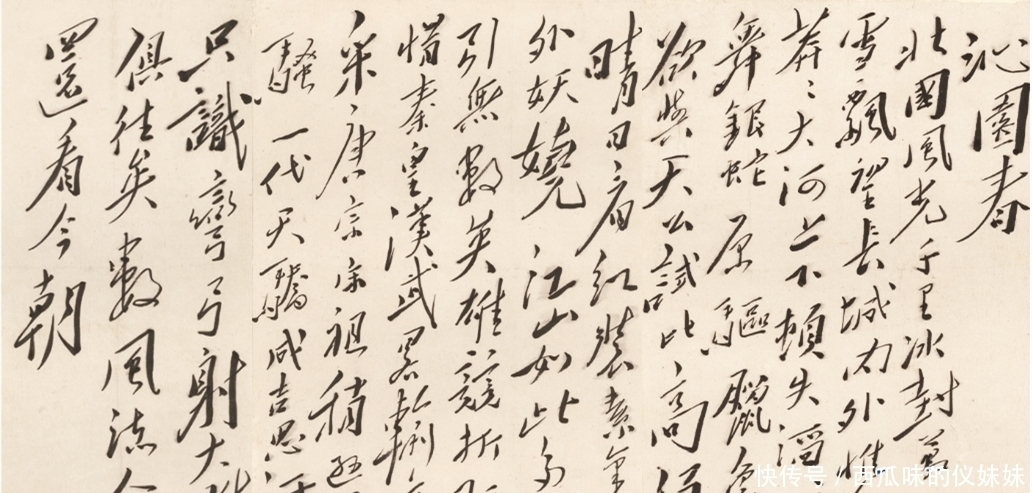 沁園春
北國風光千里冰封萬
雪飄望長城内外惟
莽〻大河上下頓失滔
舞銀蛇原驅臘象
欲與天公試比高須
晴日看紅裝素裹
外妖嬈江山如此多
引無數英雄競折
惜秦皇漢武略輸文
采唐宗宋祖稍遜
騷一代天驕成吉思汗
只識彎弓射大雕
俱往矣數風流人
還看今朝
快传号 / 西瓜味的仪妹妹